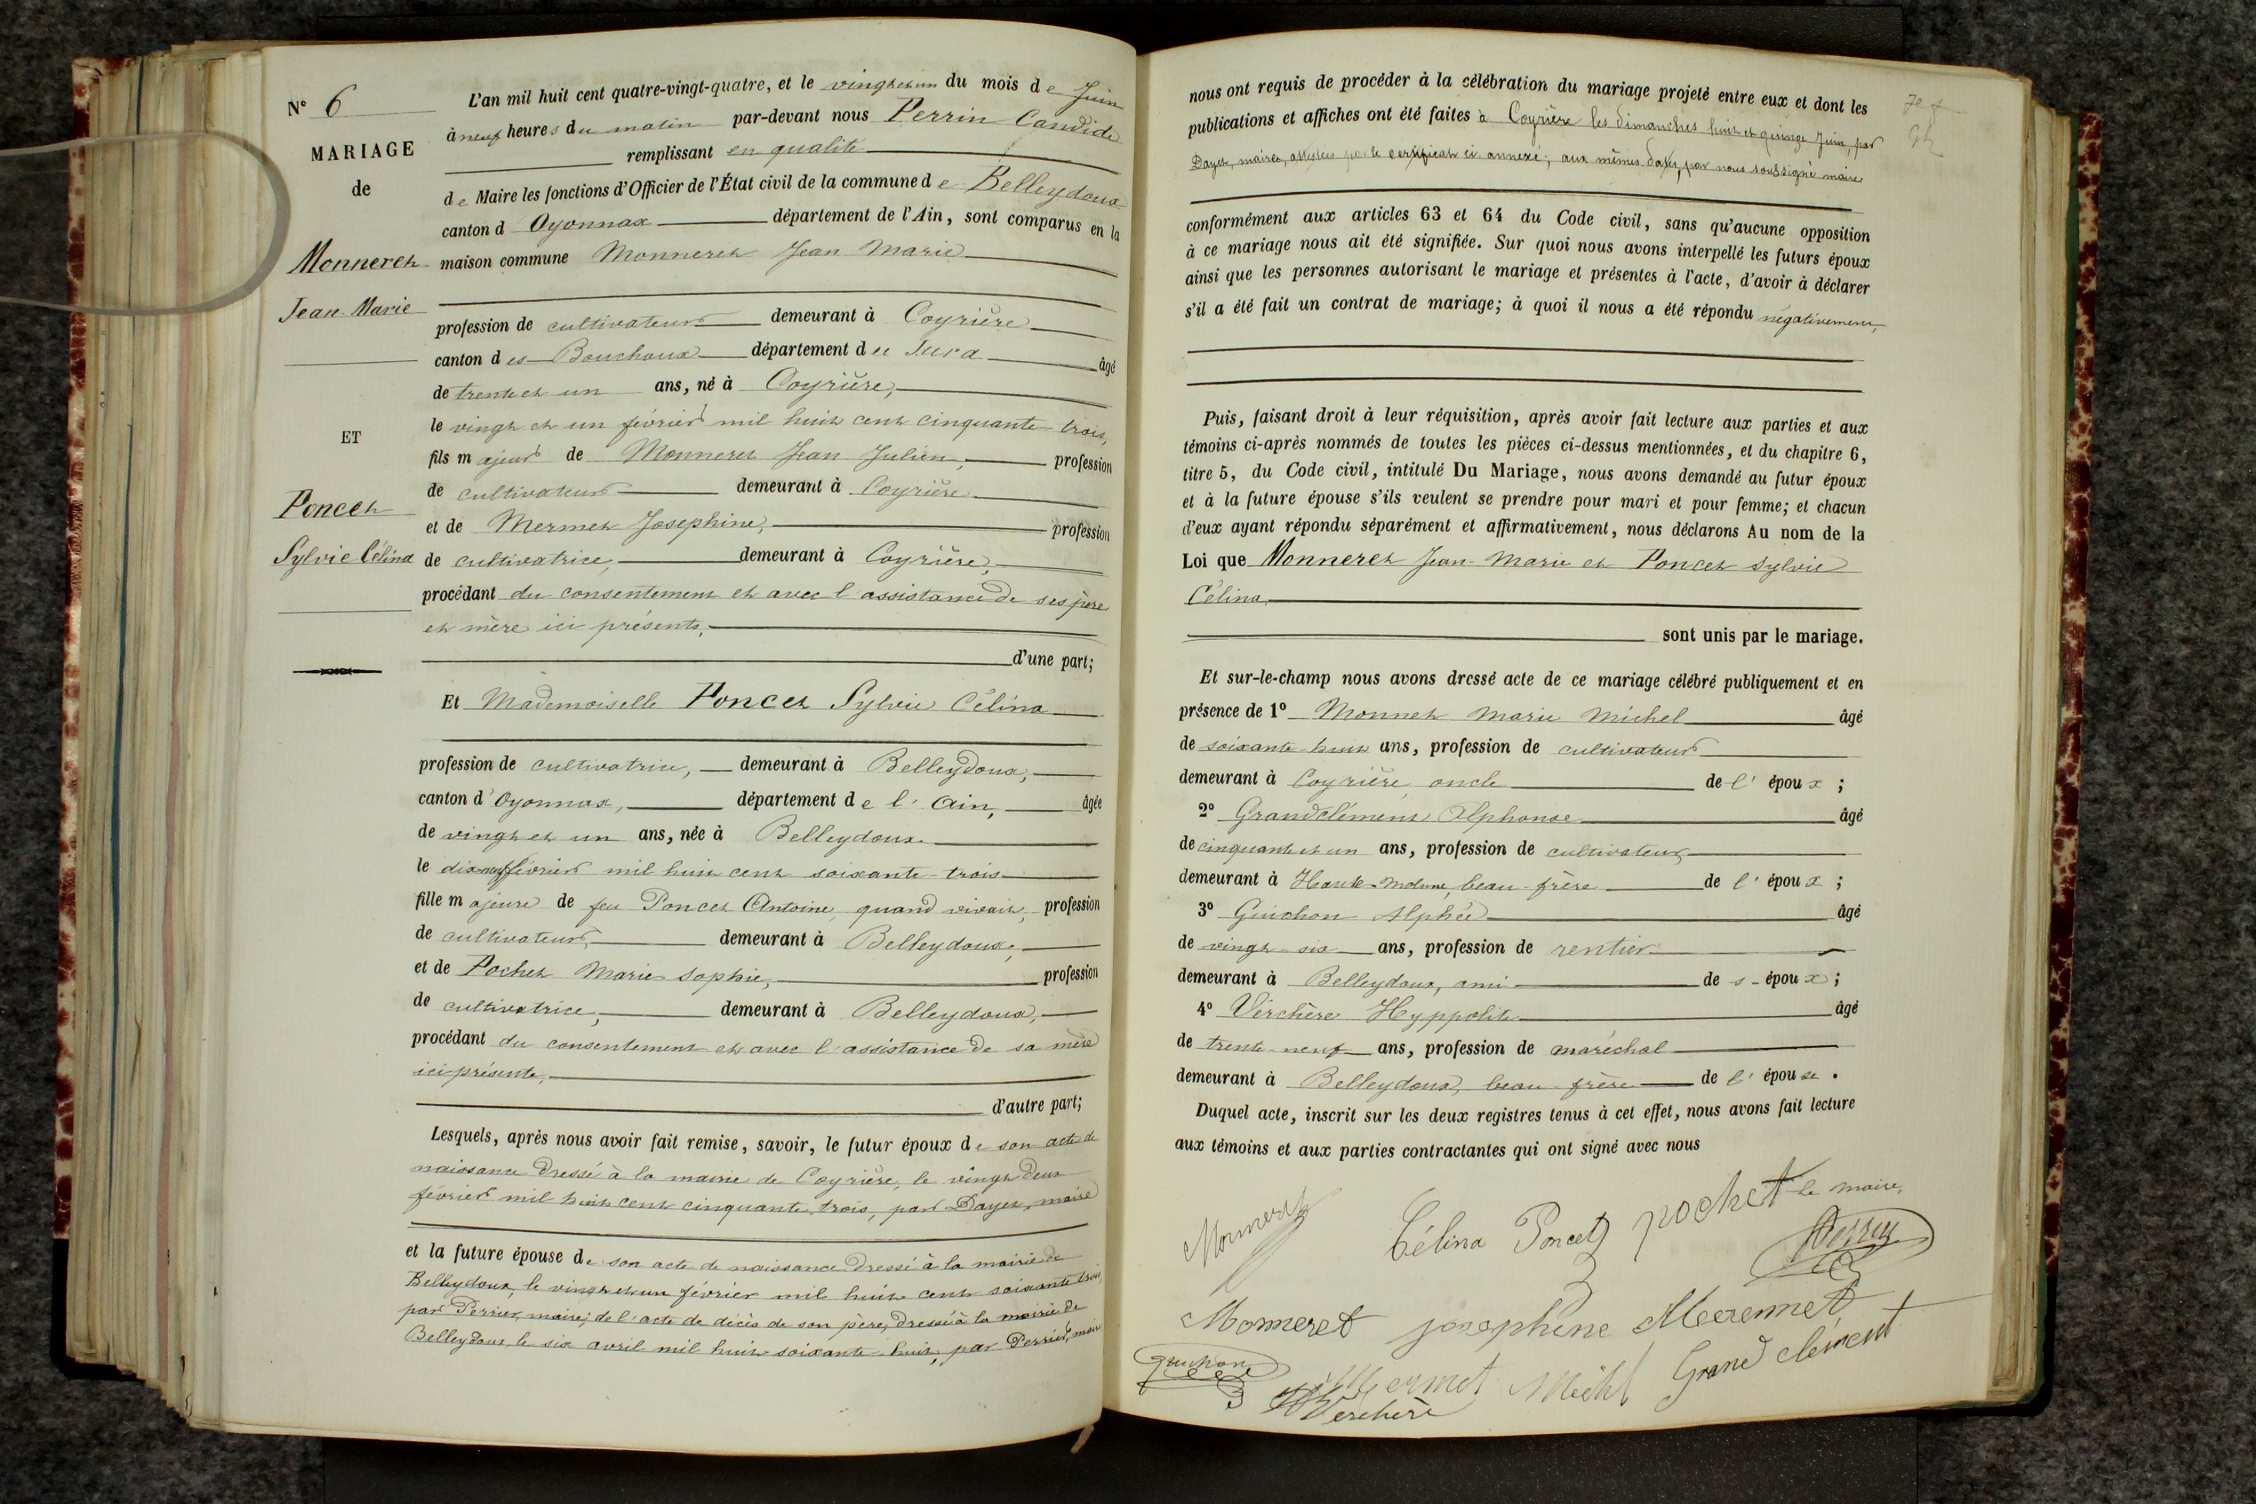 N° 6
MARIAGE
de
Monneret
Jean Marie
ET
Poncet
Sylvie Célina
L'an mil huit cent quatre-vingt-quatre, et le vingt et un du mois de Juin
à neuf heures du matin par-devant nous Perrin Candide
remplissant en qualité
de Maire les fonctions d'Officier de l'État civil de la commune de Belleydoux
canton d Oyonnax département de l'Ain, sont comparus en la
maison commune Monneret Jean Marie
profession de cultivateur demeurant à Coyrière
canton des Bouchoux département du Jura âgé
de trente et un ans, né à Coyrière,
le vingt et un février mil huit cent cinquante trois,
fils majeur de Monneret Jean Julien, profession
de cultivateur demeurant à Coyrière
et de Mermet Josephine, profession
de cultivatrice, demeurant à Coyrière,
procédant du consentement et avec l'assistance de ses père
et mère ici présents,
d'une part;
Et Mademoiselle Poncet Sylvie Célina
profession de cultivatrice, demeurant à Belleydoux,
canton d'Oyonnax, département de l'Ain, âgée
de vingt et un ans, née à Belleydoux
le dix neuf février mil huit cent soixante trois
fille majeure de feu Poncet Antoine, quand vivait, profession
de cultivateur, demeurant à Belleydoux,
et de Pochet Marie Sophie, profession
de cultivatrice, demeurant à Belleydoux,
procédant du consentement et avec l'assistance de sa mère
ici présente,
d'autre part;
Lesquels, après nous avoir fait remise, savoir, le futur époux de son acte de
naissance dressé à la mairie de Coyrière, le vingt deux
février mil huit cent cinquante trois, par Dayet, maire
et la future épouse de son acte de naissance dressé à la mairie de
Belleydoux, le vingt et un février mil huit cent soixante trois
par Perrier, maire; de l'acte de décès de son père, dressé à la mairie de
Belleydoux, le six avril mil huit soixante huit, par Perrier, maire
nous ont requis de procéder à la célébration du mariage projeté entre eux et dont les
publications et affiches ont été faites à Coyrière les dimanches huit et quinze Juin, par
Dayet, maire, attestées par le certificat ci annexé; aux mêmes dates, par nous soussigné maire
conformément aux articles 63 et 64 du Code civil, sans qu'aucune opposition
à ce mariage nous ait été signifiée. Sur quoi nous avons interpellé les futurs époux
ainsi que les personnes autorisant le mariage et présentes à l'acte, d'avoir à déclarer
s'il a été fait un contrat de mariage; à quoi il nous a été répondu négativement,
Puis, faisant droit à leur réquisition, après avoir fait lecture aux parties et aux
témoins ci-après nommés de toutes les pièces ci-dessus mentionnées, et du chapitre 6,
titre 5, du Code civil, intitulé Du Mariage, nous avons demandé au futur époux
et à la future épouse s'ils veulent se prendre pour mari et pour femme; et chacun
d'eux ayant répondu séparément et affirmativement, nous déclarons Au nom de la
Loi que Monneret Jean-Marie et Poncet Sylvie
Célina,
sont unis par le mariage.
Et sur-le-champ nous avons dressé acte de ce mariage célébré publiquement et en
présence de 1° Monnet Marie Michel âgé
de soixante huit ans, profession de cultivateur
demeurant à Coyrière, oncle de l'époux;
2° Grandclément Alphonse âgé
de cinquante et un ans, profession de cultivateur
demeurant à Haute-Molune, beau-frère de l'époux;
3° Guichon Alphée âgé
de vingt six ans, profession de rentier
demeurant à Belleydoux, ami de s-époux;
4° Verchère Hyppolite âgé
de trente neuf ans, profession de maréchal
demeurant à Belleydoux, beau-frère de l'épouse.
Duquel acte, inscrit sur les deux registres tenus à cet effet, nous avons fait lecture
aux témoins et aux parties contractantes qui ont signé avec nous
Monneret Célina Poncet pochet le maire,
Perrin
Monneret josephine Meremet
guichon Mermet Michel Grand clément
H Verchère